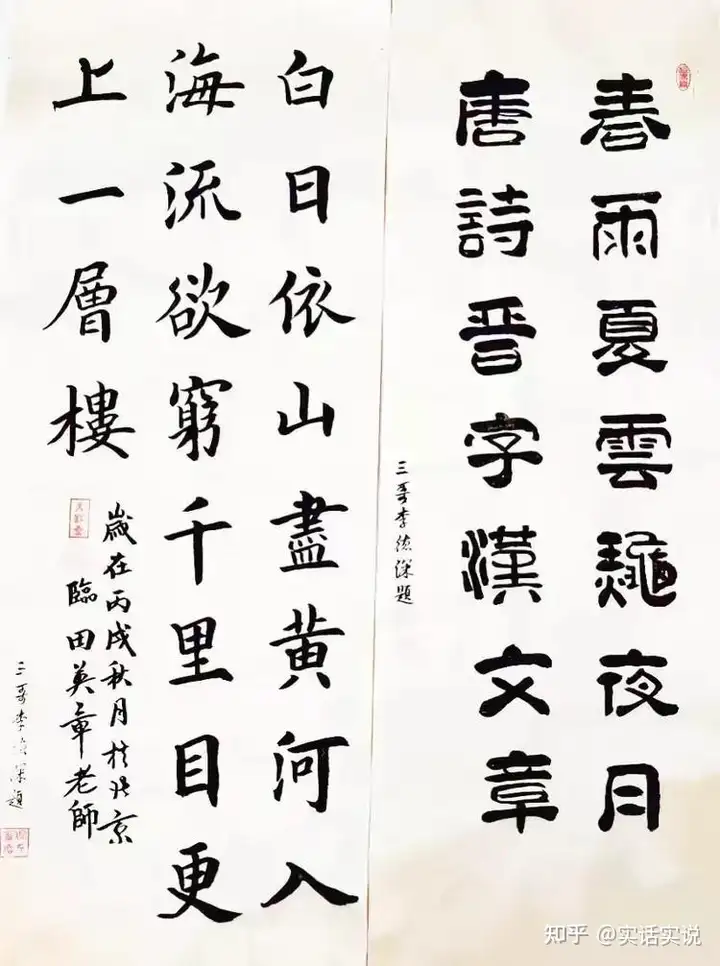 春雨夏雲龝夜月
唐詩晋字漢文章
三哥李德深題
白日依山盡黄河入
海流欲窮千里目更
上一層樓
歲在丙戌秋月於北京
臨田英章老師
三哥李德深題
知乎 @实话实说